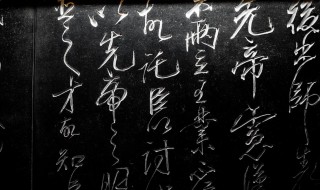 後出師
先帝慮漢
兩立王業不
故託臣以討
以先帝之明
之才故知臣